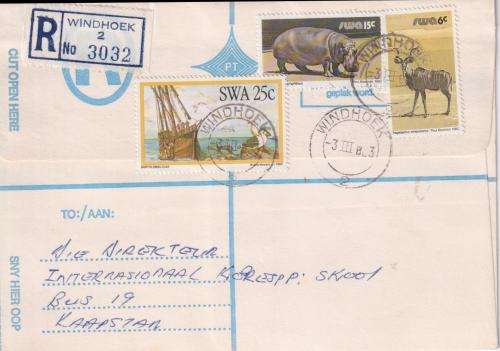 R
WINDHOEK
2
No 3032
CUT OPEN HERE
PT
swa 15c
swa 6c
geplak word.
SWA 25c
WINDHOEK
WINDHOEK
-3 III 83
2
WINDHOEK
TO:/AAN:
DIE DIREKTEUR
INTERNASIONAAL KORESPP: SKOOL
BUS 19
KAAPSTAD
SNY HIER OOP